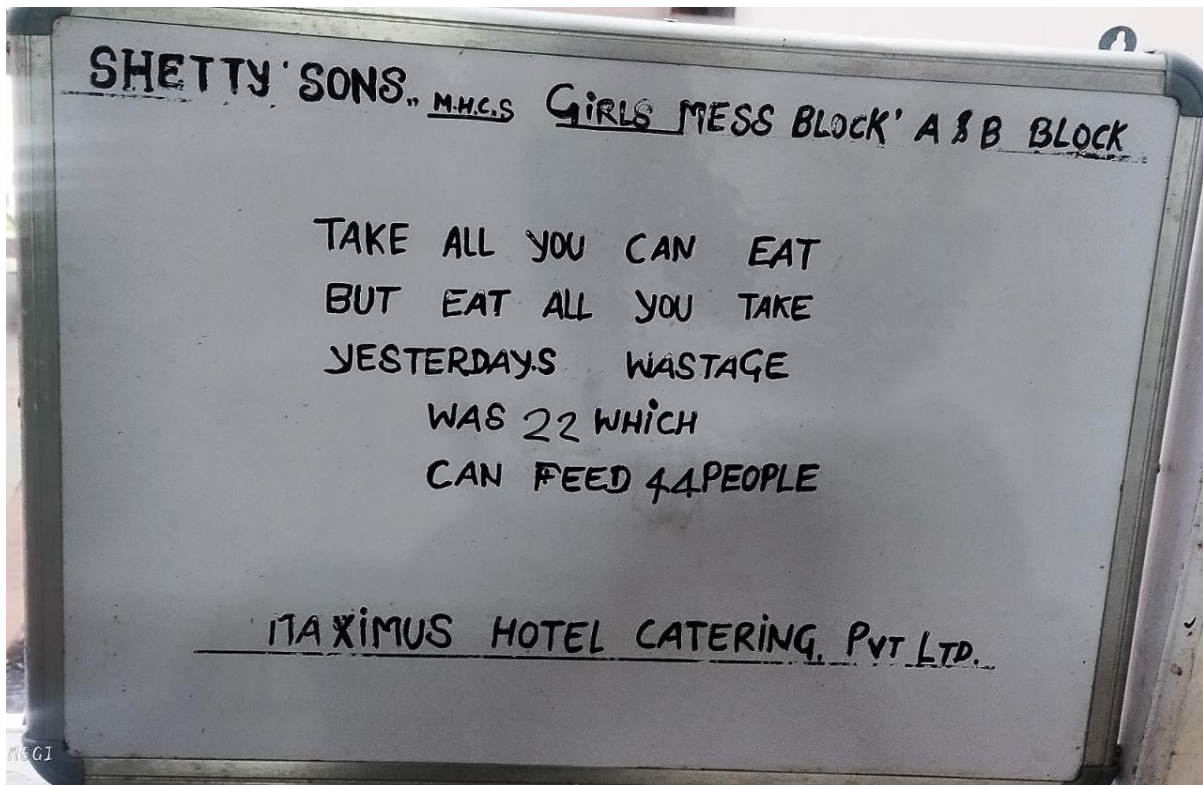 SHETTY'SONS.. M.H.C.S GiRLS MESS BLOCK' A & B BLOCK
TAKE ALL YOU CAN EAT
BUT EAT ALL YOU TAKE
YESTERDAY.S WASTAGE
WAS 22 WHiCH
CAN FEED 44 PEOPLE
MAXiMUS HOTEL CATERiNG. PVT LTD.
MEGI